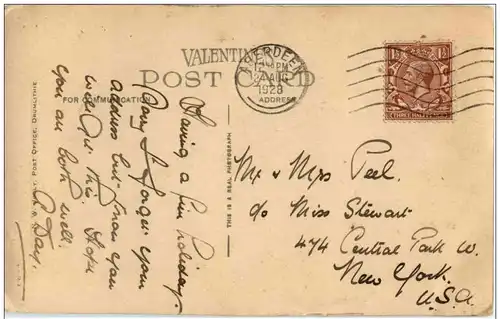 VALENTINE'S
POST CARD
FOR COMMUNICATION
ADDRESS
ABERDEEN
PM
AUG
1928
THREE HALFPENCE
Having a fine holiday.
Sorry I forgot your
address but know you
will get this. Hope
you are both well.
A. Day.
POST OFFICE, DRUMLITHIE
THIS IS A REAL PHOTOGRAPH
Mr & Mrs Peel.
c/o Miss Stewart
474 Central Park W.
New York.
U.S.A.